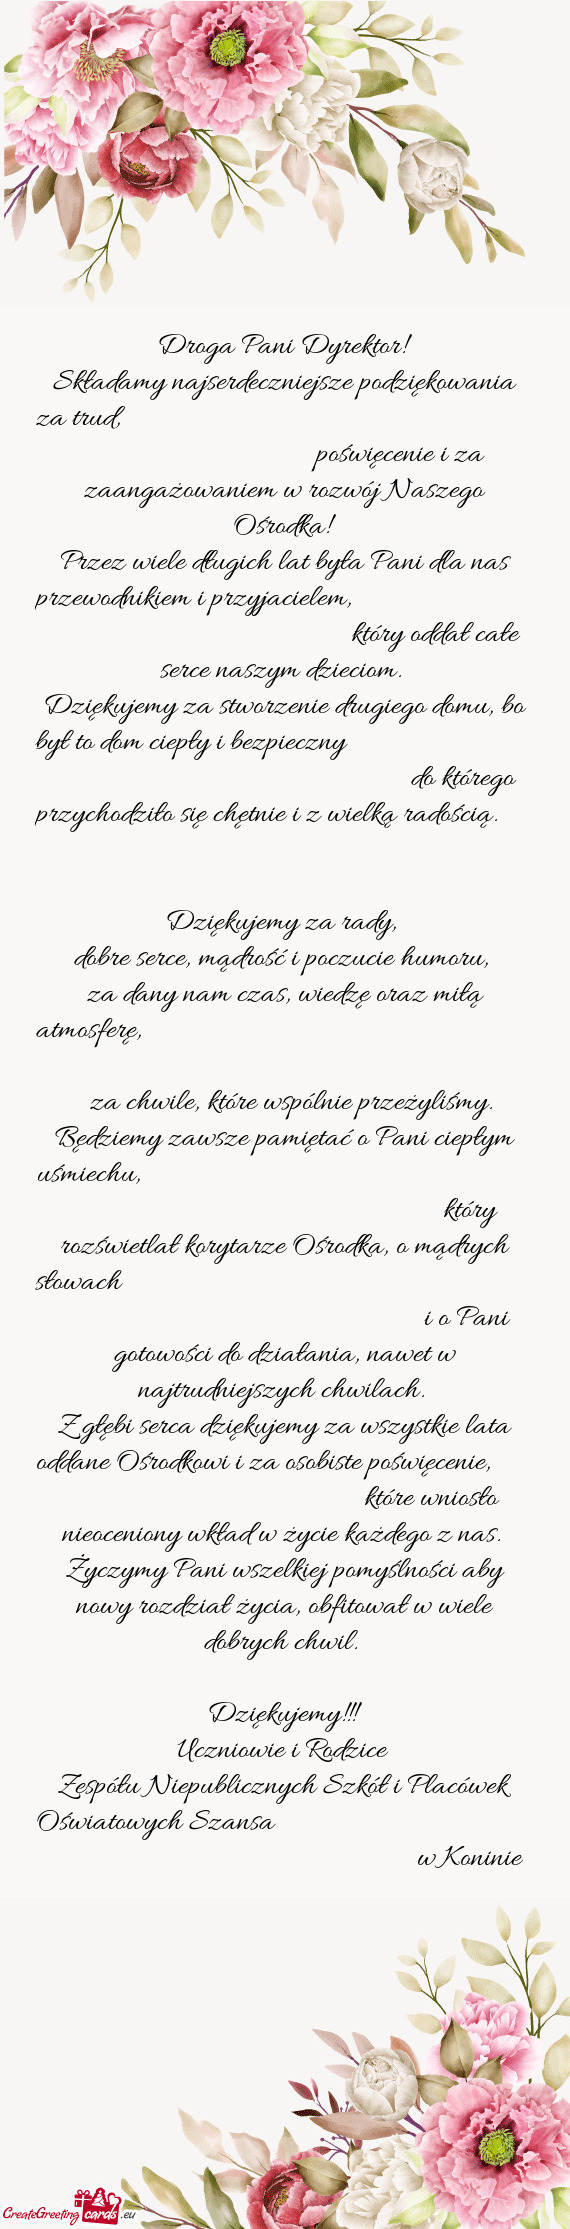 Droga Pani Dyrektor!
Składamy najserdeczniejsze podziękowania
za trud,
poświęcenie i za
zaangażowaniem w rozwój Naszego
Ośrodka!
Przez wiele długich lat była Pani dla nas
przewodnikiem i przyjacielem,
który oddał całe
serce naszym dzieciom.
Dziękujemy za stworzenie drugiego domu, bo
był to dom ciepły i bezpieczny
do którego
przychodziło się chętnie i z wielką radością.
Dziękujemy za rady,
dobre serce, mądrość i poczucie humoru,
za dany nam czas, wiedzę oraz miłą
atmosferę,
za chwile, które wspólnie przeżyliśmy.
Będziemy zawsze pamiętać o Pani ciepłym
uśmiechu,
który
rozświetlał korytarze Ośrodka, o mądrych
słowach
i o Pani
gotowości do działania, nawet w
najtrudniejszych chwilach.
Z głębi serca dziękujemy za wszystkie lata
oddane Ośrodkowi i za osobiste poświęcenie,
które wniosło
nieoceniony wkład w życie każdego z nas.
Życzymy Pani wszelkiej pomyślności aby
nowy rozdział życia, obfitował w wiele
dobrych chwil.
Dziękujemy!!!
Uczniowie i Rodzice
Zespółu Niepublicznych Szkół i Placówek
Oświatowych Szansa
w Koninie
CreateGreeting cards .eu